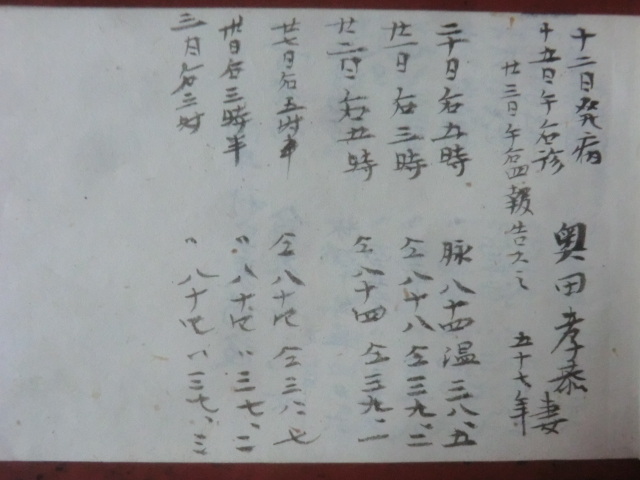 十二日発病
十五日午后診 奥田孝泰妻
廿三日午后四報告ス 五十七年
二十日后五時 脉八十四温三八、五
廿一日后三時 仝八十八仝三九、二
廿二日后五時 仝八十四仝三九、一
廿七日后五時半 仝八十 仝三八、七
廿日后三時半 〃八十 〃三七、二
三日后三時 〃八十 〃三七、三